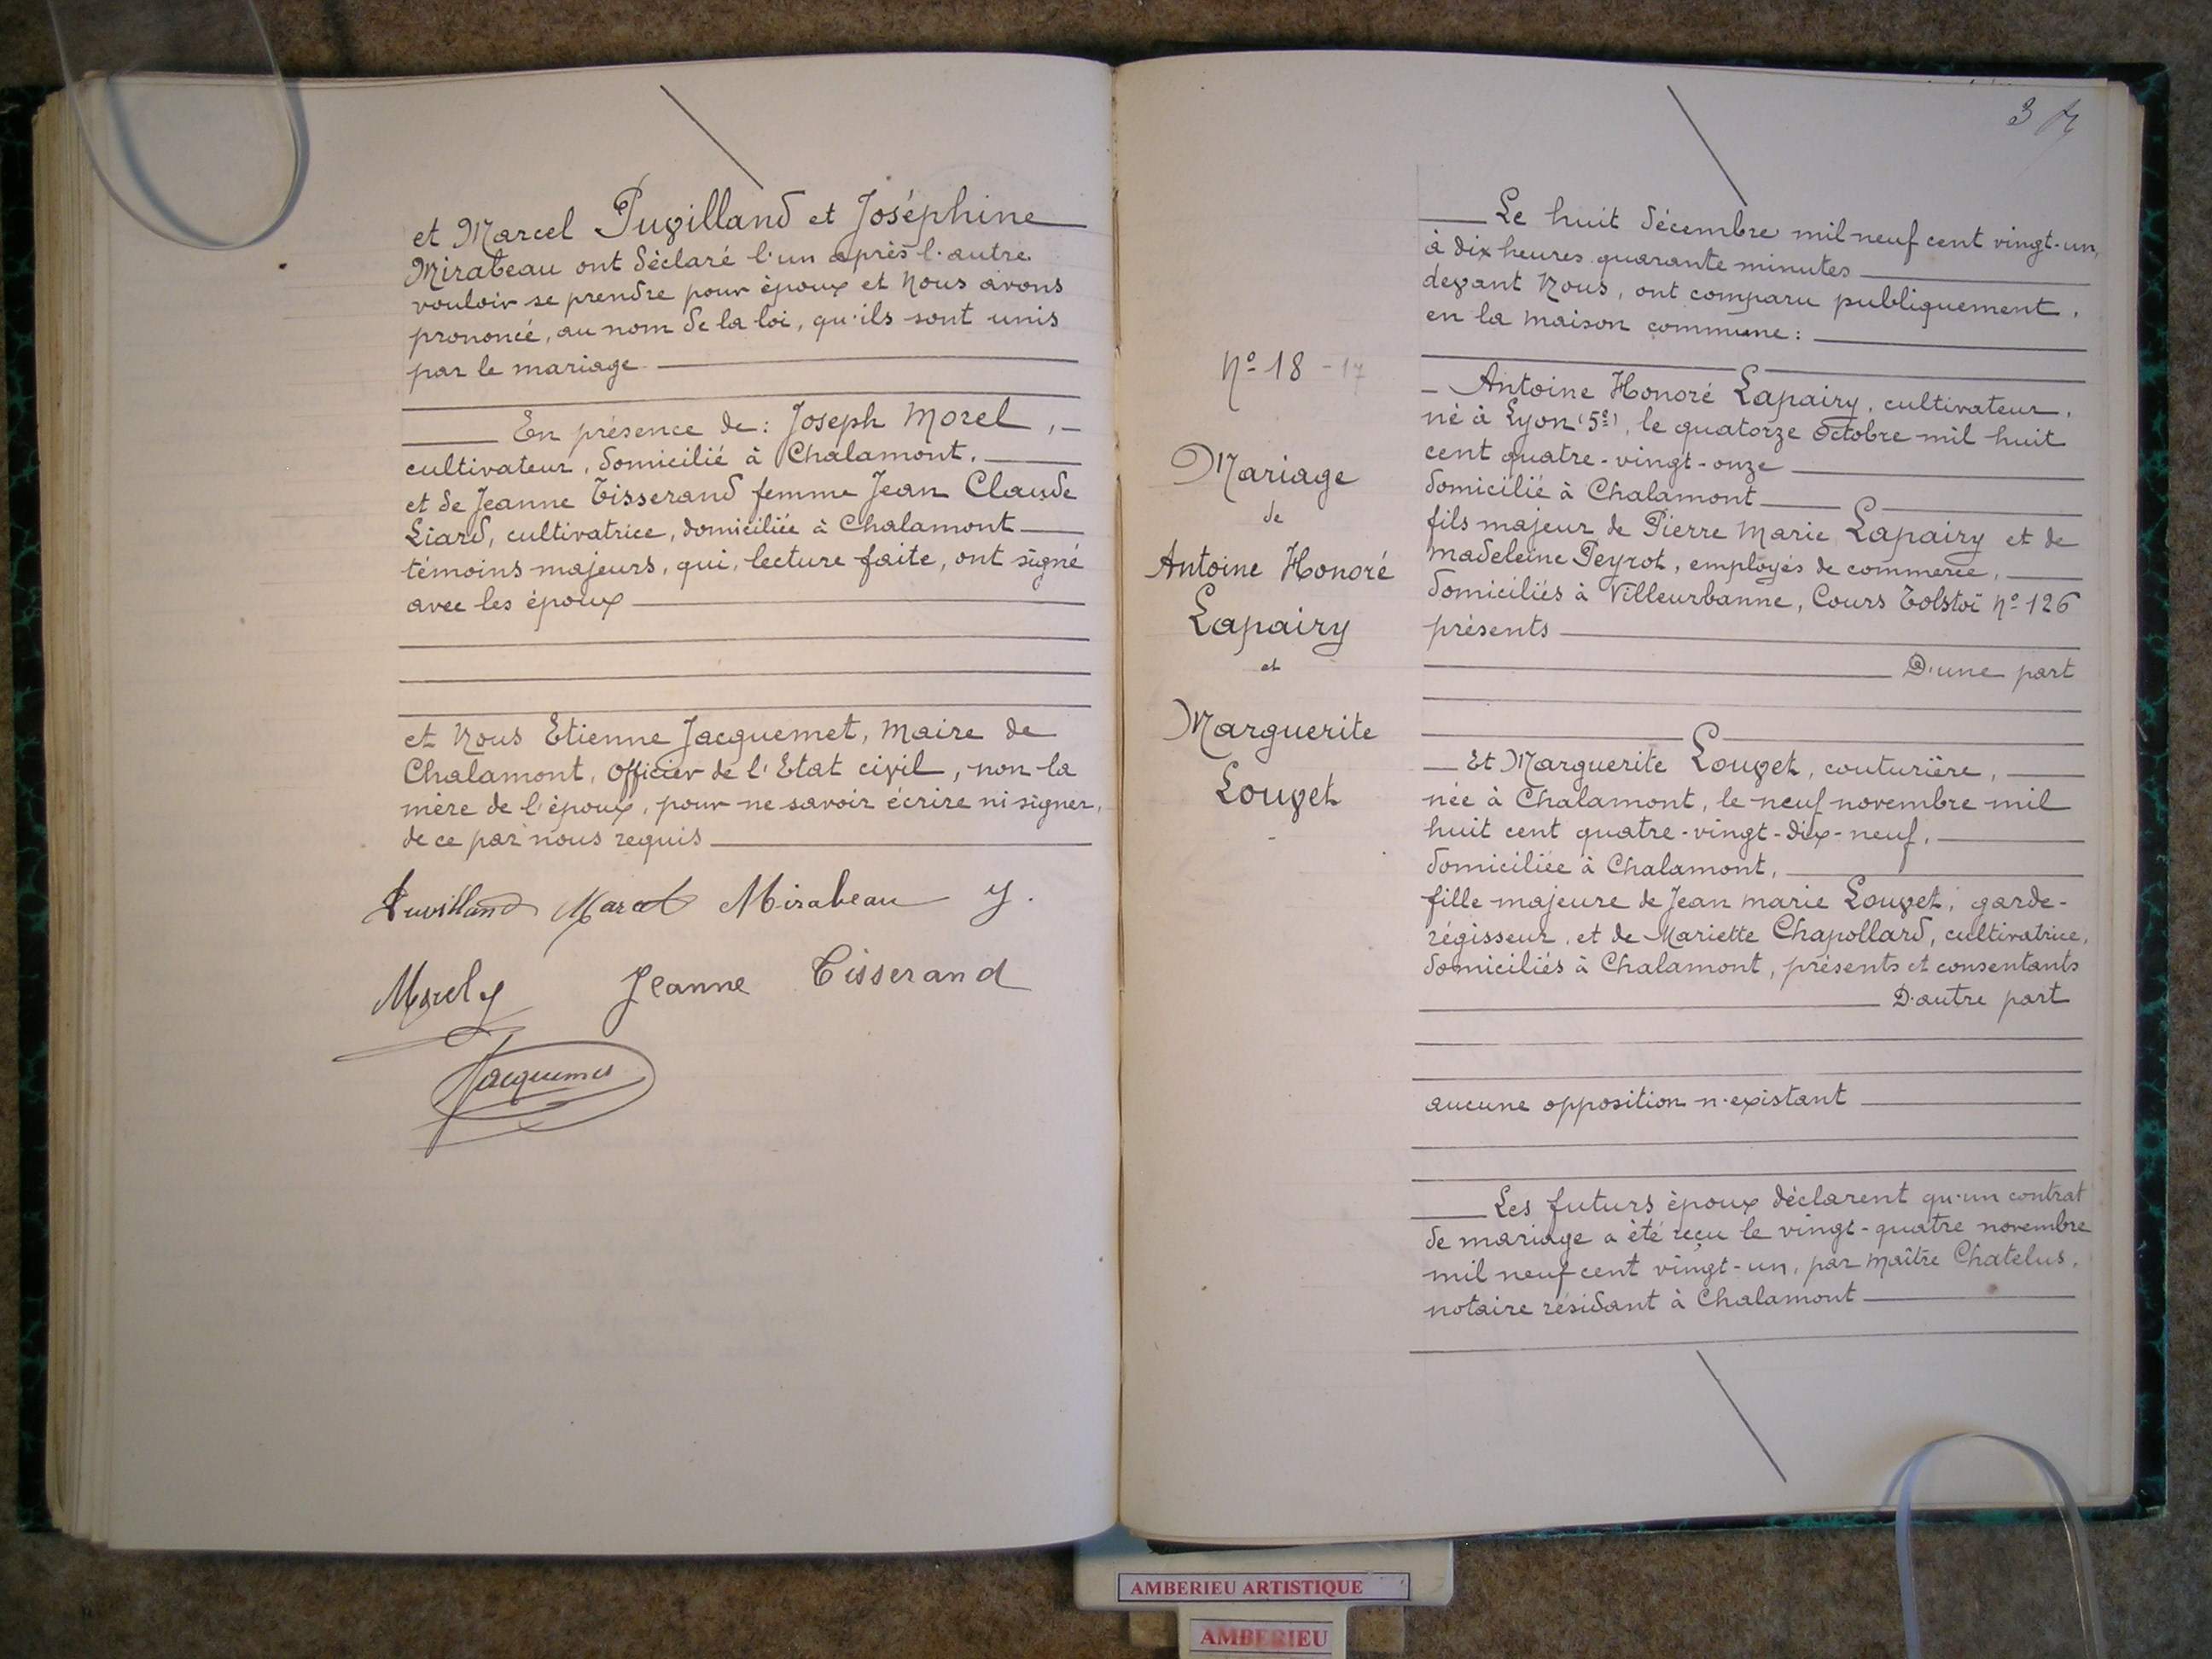 et Marcel Puvilland et Joséphine
Mirabeau ont déclaré l'un après l'autre
vouloir se prendre pour époux et Nous avons
prononcé, au nom de la loi, qu'ils sont unis
par le mariage
En présence de : Joseph Morel,
cultivateur, domicilié à Chalamont,
et de Jeanne Tisserand femme Jean Claude
Liard, cultivatrice, domiciliée à Chalamont
témoins majeurs, qui, lecture faite, ont signé
avec les époux
et Nous Etienne Jacquemet, Maire de
Chalamont, Officier de l'Etat civil, non la
mère de l'époux, pour ne savoir écrire ni signer,
de ce par nous requis
Puvilland Marcel Mirabeau J.
Morel J Jeanne Tisserand
Jacquemet
3
N° 18 - 17
Mariage
de
Antoine Honoré
Lapairy
et
Marguerite
Louvet
Le huit décembre mil neuf cent vingt-un,
à dix heures quarante minutes
devant Nous, ont comparu publiquement,
en la maison commune :
Antoine Honoré Lapairy, cultivateur,
né à Lyon (5e), le quatorze Octobre mil huit
cent quatre-vingt-onze
domicilié à Chalamont
fils majeur de Pierre Marie Lapairy et de
Madeleine Peyrot, employés de commerce,
domiciliés à Villeurbanne, Cours Tolstoï n° 126
présents
D'une part
Et Marguerite Louvet, couturière,
née à Chalamont, le neuf novembre mil
huit cent quatre-vingt-dix-neuf,
domiciliée à Chalamont,
fille majeure de Jean Marie Louvet, garde-
régisseur, et de Mariette Chapollard, cultivatrice,
domiciliés à Chalamont, présents et consentants
D'autre part
aucune opposition n'existant
Les futurs époux déclarent qu'un contrat
de mariage a été reçu le vingt-quatre novembre
mil neuf cent vingt-un, par Maître Chatelus,
notaire résidant à Chalamont
AMBERIEU ARTISTIQUE
AMBERIEU